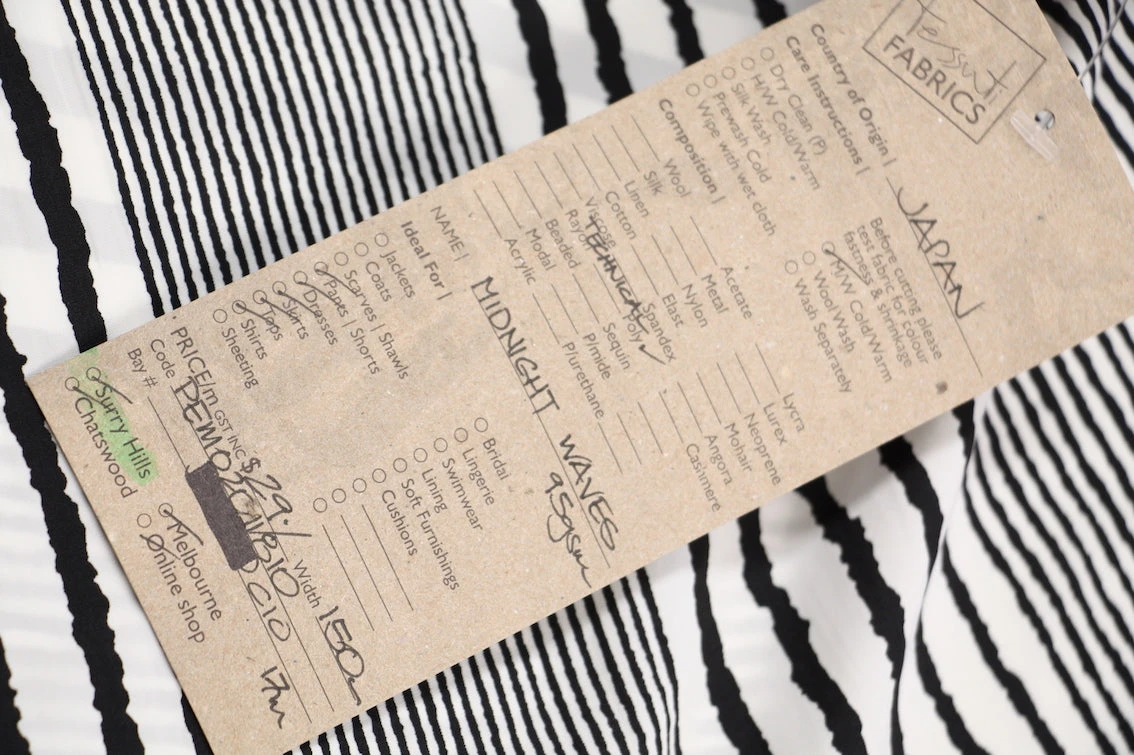 Tessuti
FABRICS
Country of Origin | JAPAN
Care Instructions |
Before cutting please
test fabric for colour
fastness & shrinkage
Dry Clean (P)
H/W Cold/Warm
Silk Wash
Prewash Cold
Wipe with wet cloth
M/W Cold/Warm
Wool Wash
Wash Separately
Composition |
Wool
Silk
Linen
Cotton
Viscose
Rayon
Beaded
Modal
Acrylic
TECHNICAL
Acetate
Metal
Nylon
Elast
Spandex
Poly ✓
Sequin
P/mide
P/urethane
Lycra
Lurex
Neoprene
Mohair
Angora
Cashmere
NAME | MIDNIGHT WAVES
95gsm
Ideal For |
Jackets
Coats
Scarves | Shawls
Pants | Shorts
Dresses
Skirts
Tops
Shirts
Sheeting
Bridal
Lingerie
Swimwear
Lining
Soft Furnishings
Cushions
PRICE/m GST INC $29./ Width 150
Code
Bay # C10 17m
Surry Hills
Chatswood
Melbourne
Online shop